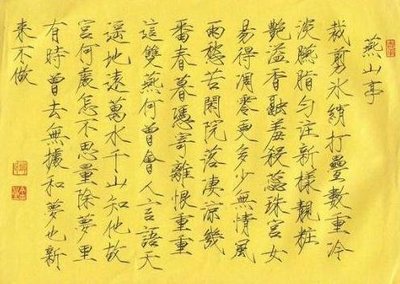 燕山亭
裁剪冰綃打疊數重冷
淡臙脂勻注新樣靚粧
艷溢香融羞殺蕊珠宮女
易得凋零更多少無情風
雨愁苦閑院落淒涼幾
番春暮憑寄離恨重重
這雙燕何曾會人言語天
遙地遠萬水千山知他故
宮何處怎不思量除夢里
有時曾去無據和夢也新
來不做